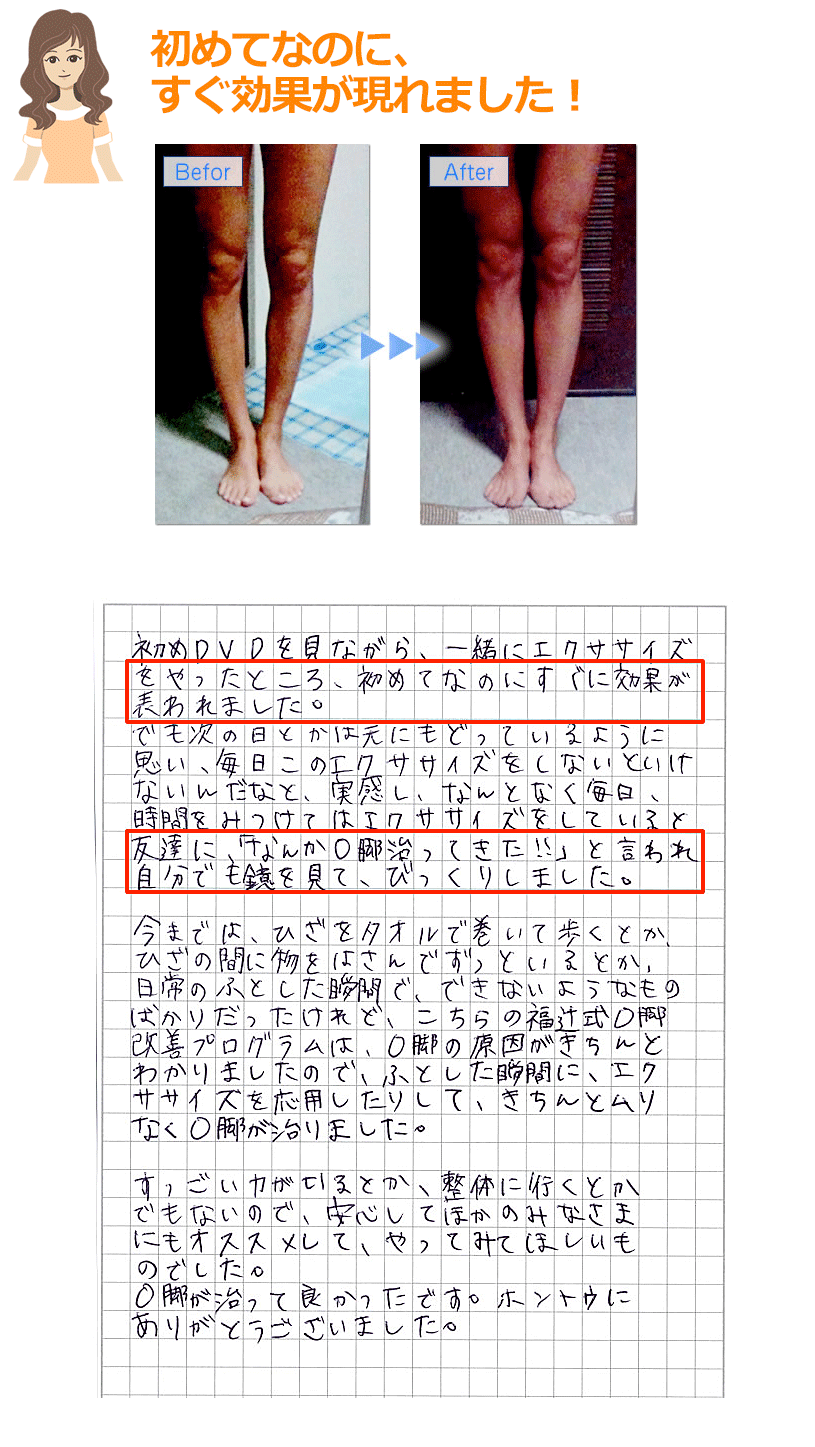 初めてなのに、
すぐ効果が現れました！
Befor
After
初めDVDを見ながら、一緒にエクササイズ
をやったところ、初めてなのにすぐに効果が
表われました。
でも次の日とかは元にもどっているように
思い、毎日このエクササイズをしないといけ
ないんだなと、実感し、なんとなく毎日、
時間をみつけてはエクササイズをしていると
友達に、「なんかO脚治ってきた!!」と言われ
自分でも鏡を見て、びっくりしました。
今までは、ひざをタオルで巻いて歩くとか、
ひざの間に物をはさんでずっといるとか、
日常のふとした瞬間で、できないようなもの
ばかりだったけれど、こちらの福辻式O脚
改善プログラムは、O脚の原因がきちんと
わかりましたので、ふとした瞬間に、エク
ササイズを応用したりして、きちんとムリ
なくO脚が治りました。
すっごい力がいるとか、整体に行くとか
でもないので、安心してほかのみなさま
にもオススメして、やってみてほしいも
のでした。
O脚が治って良かったです。ホントウに
ありがとうございました。